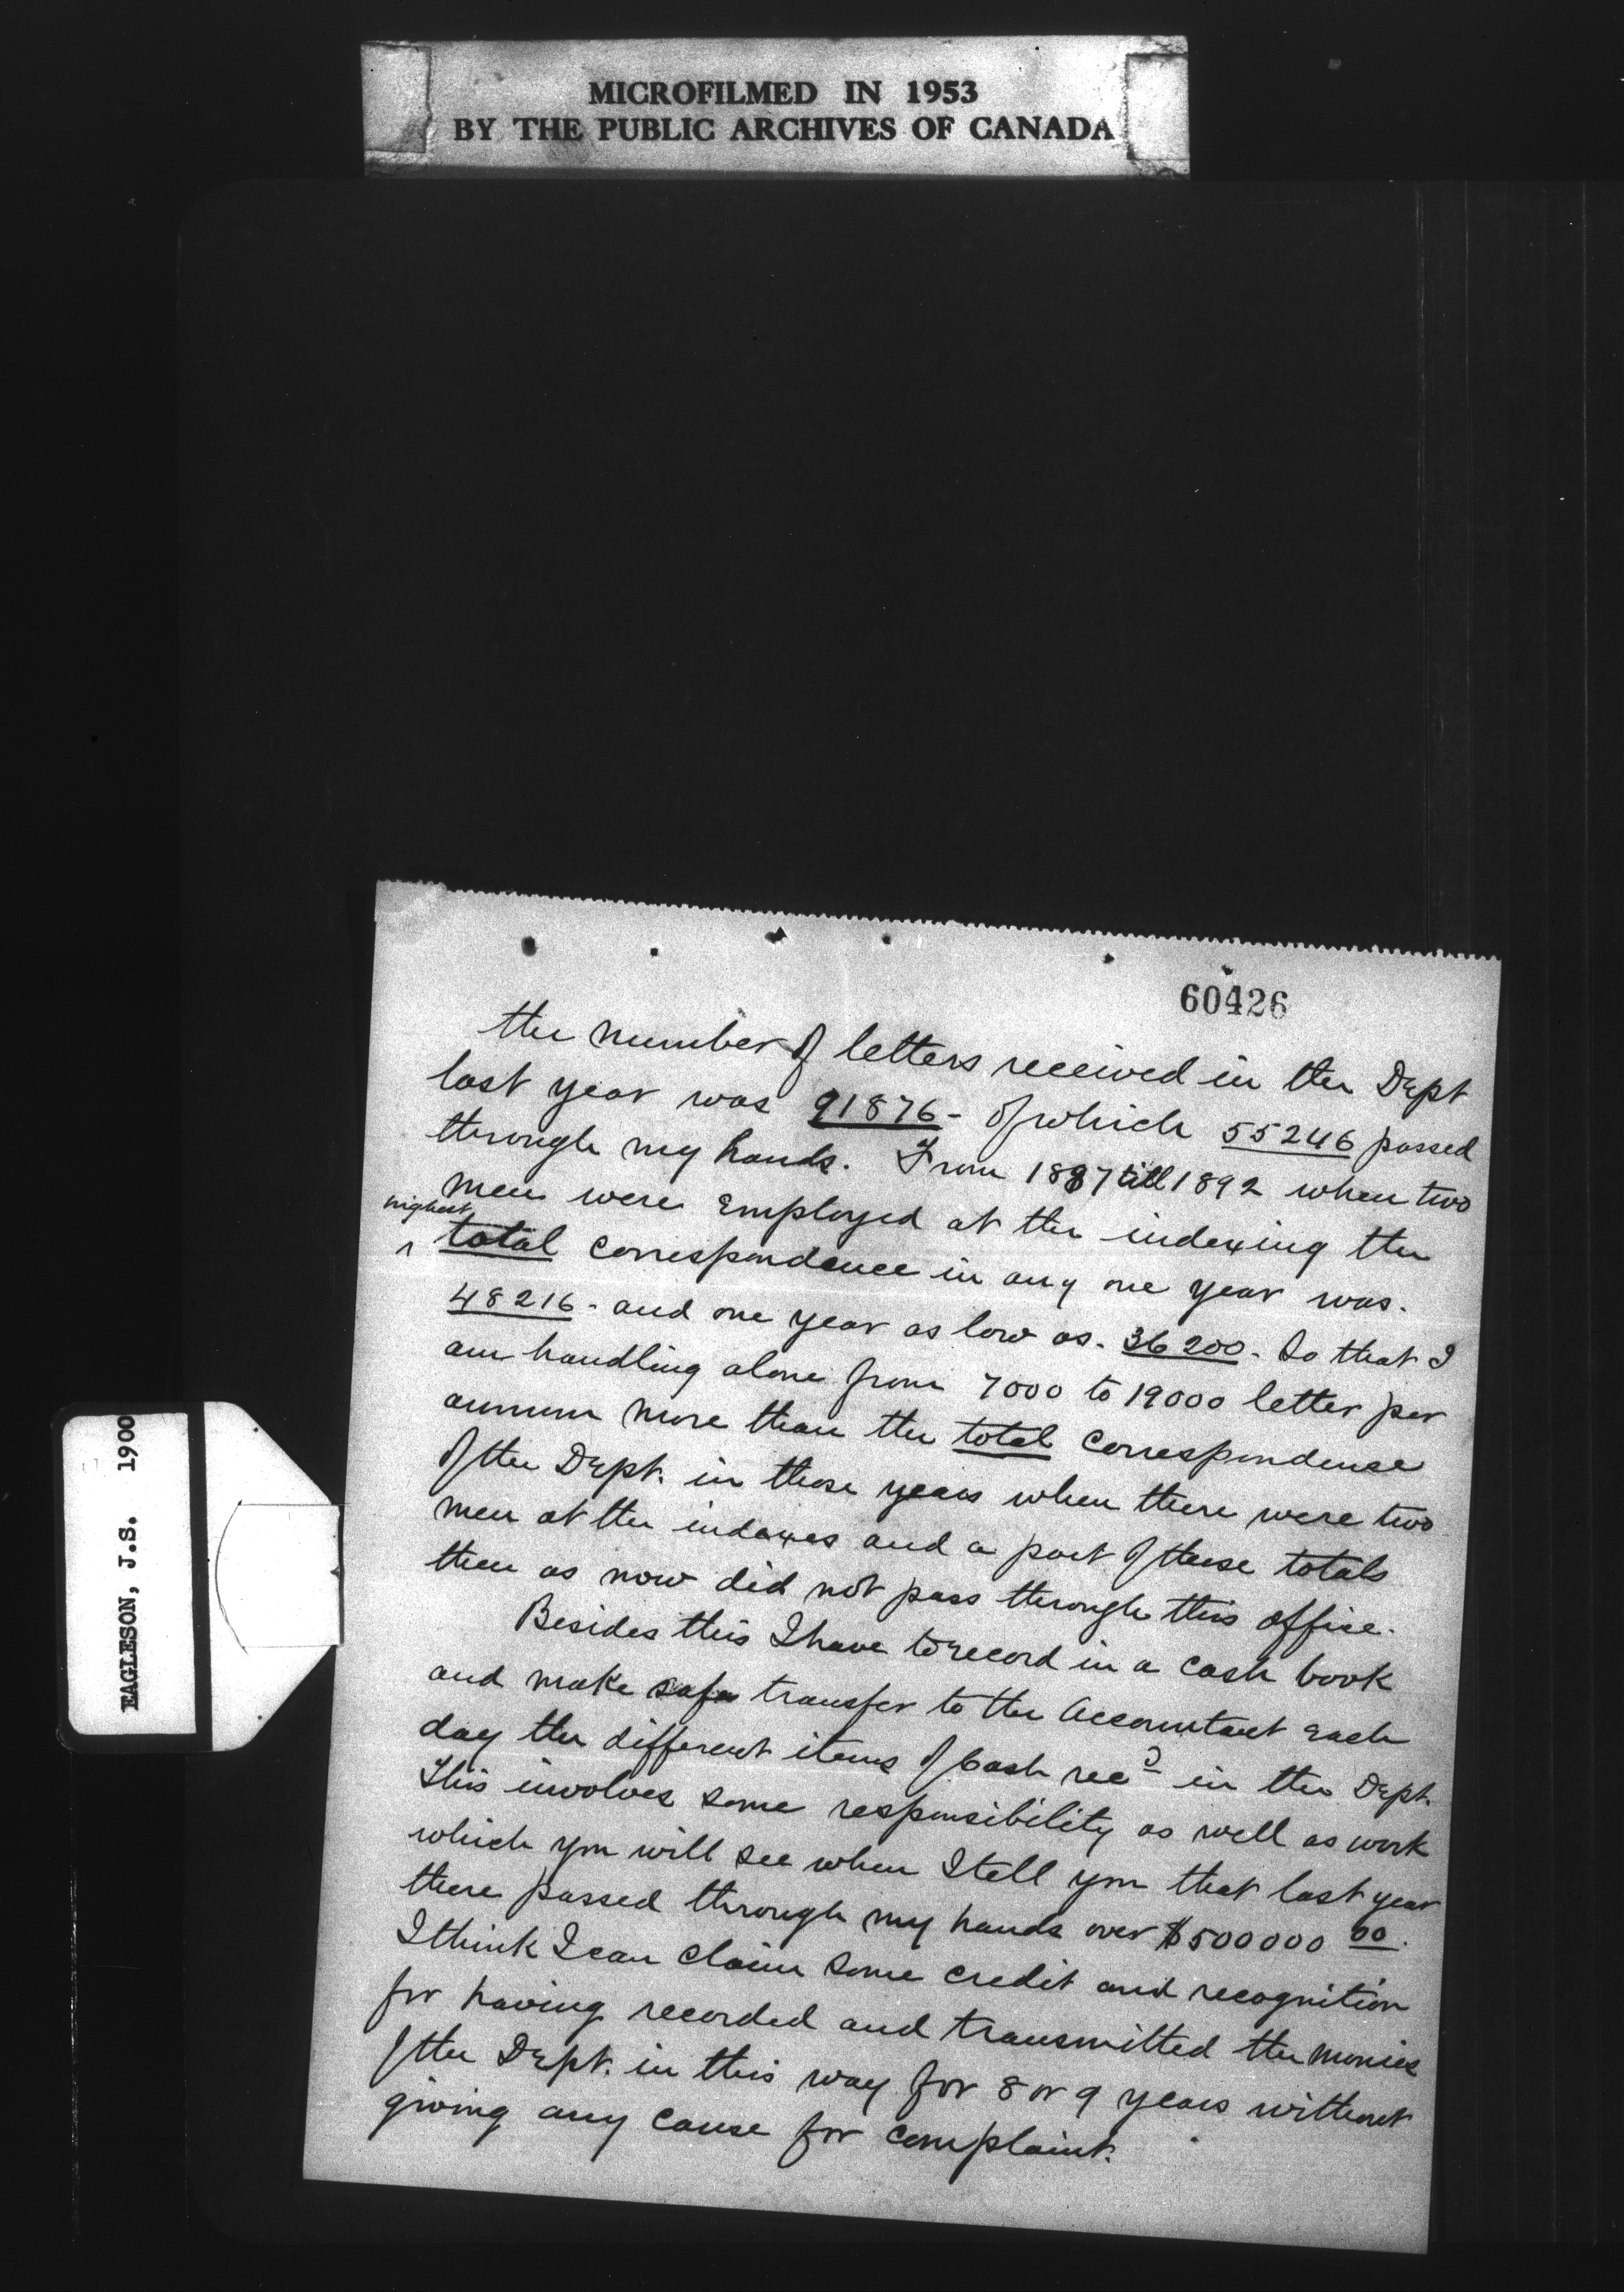 MICROFILMED IN 1953
BY THE PUBLIC ARCHIVES OF CANADA
60426
the number of letters received in the Dept
last year was 91876 - of which 55246 passed
through my hands. From 1887 till 1892 when two
men were employed at the indexing the
highest
^ total correspondence in any one year was.
48216 - and one year as low as. 36200 - So that I
am handling alone from 7000 to 19000 letter per
annum more than the total correspondense
of the Dept. in those years when there were two
men at the indexes and a part of these totals
then as now did not pass through this office.
Besides this I have to record in a cash book
and make safe transfer to the Accountant each
day the different items of Cash recd in the Dept.
This involves some responsibility as well as work
which you will see when I tell you that last year
there passed through my hands over $500000 00.
I think I can claim some credit and recognition
for having recorded and transmitted the monies
of the Dept. in this way for 8 or 9 years without
giving any cause for complaint.
EAGLESON, J.S. 1900